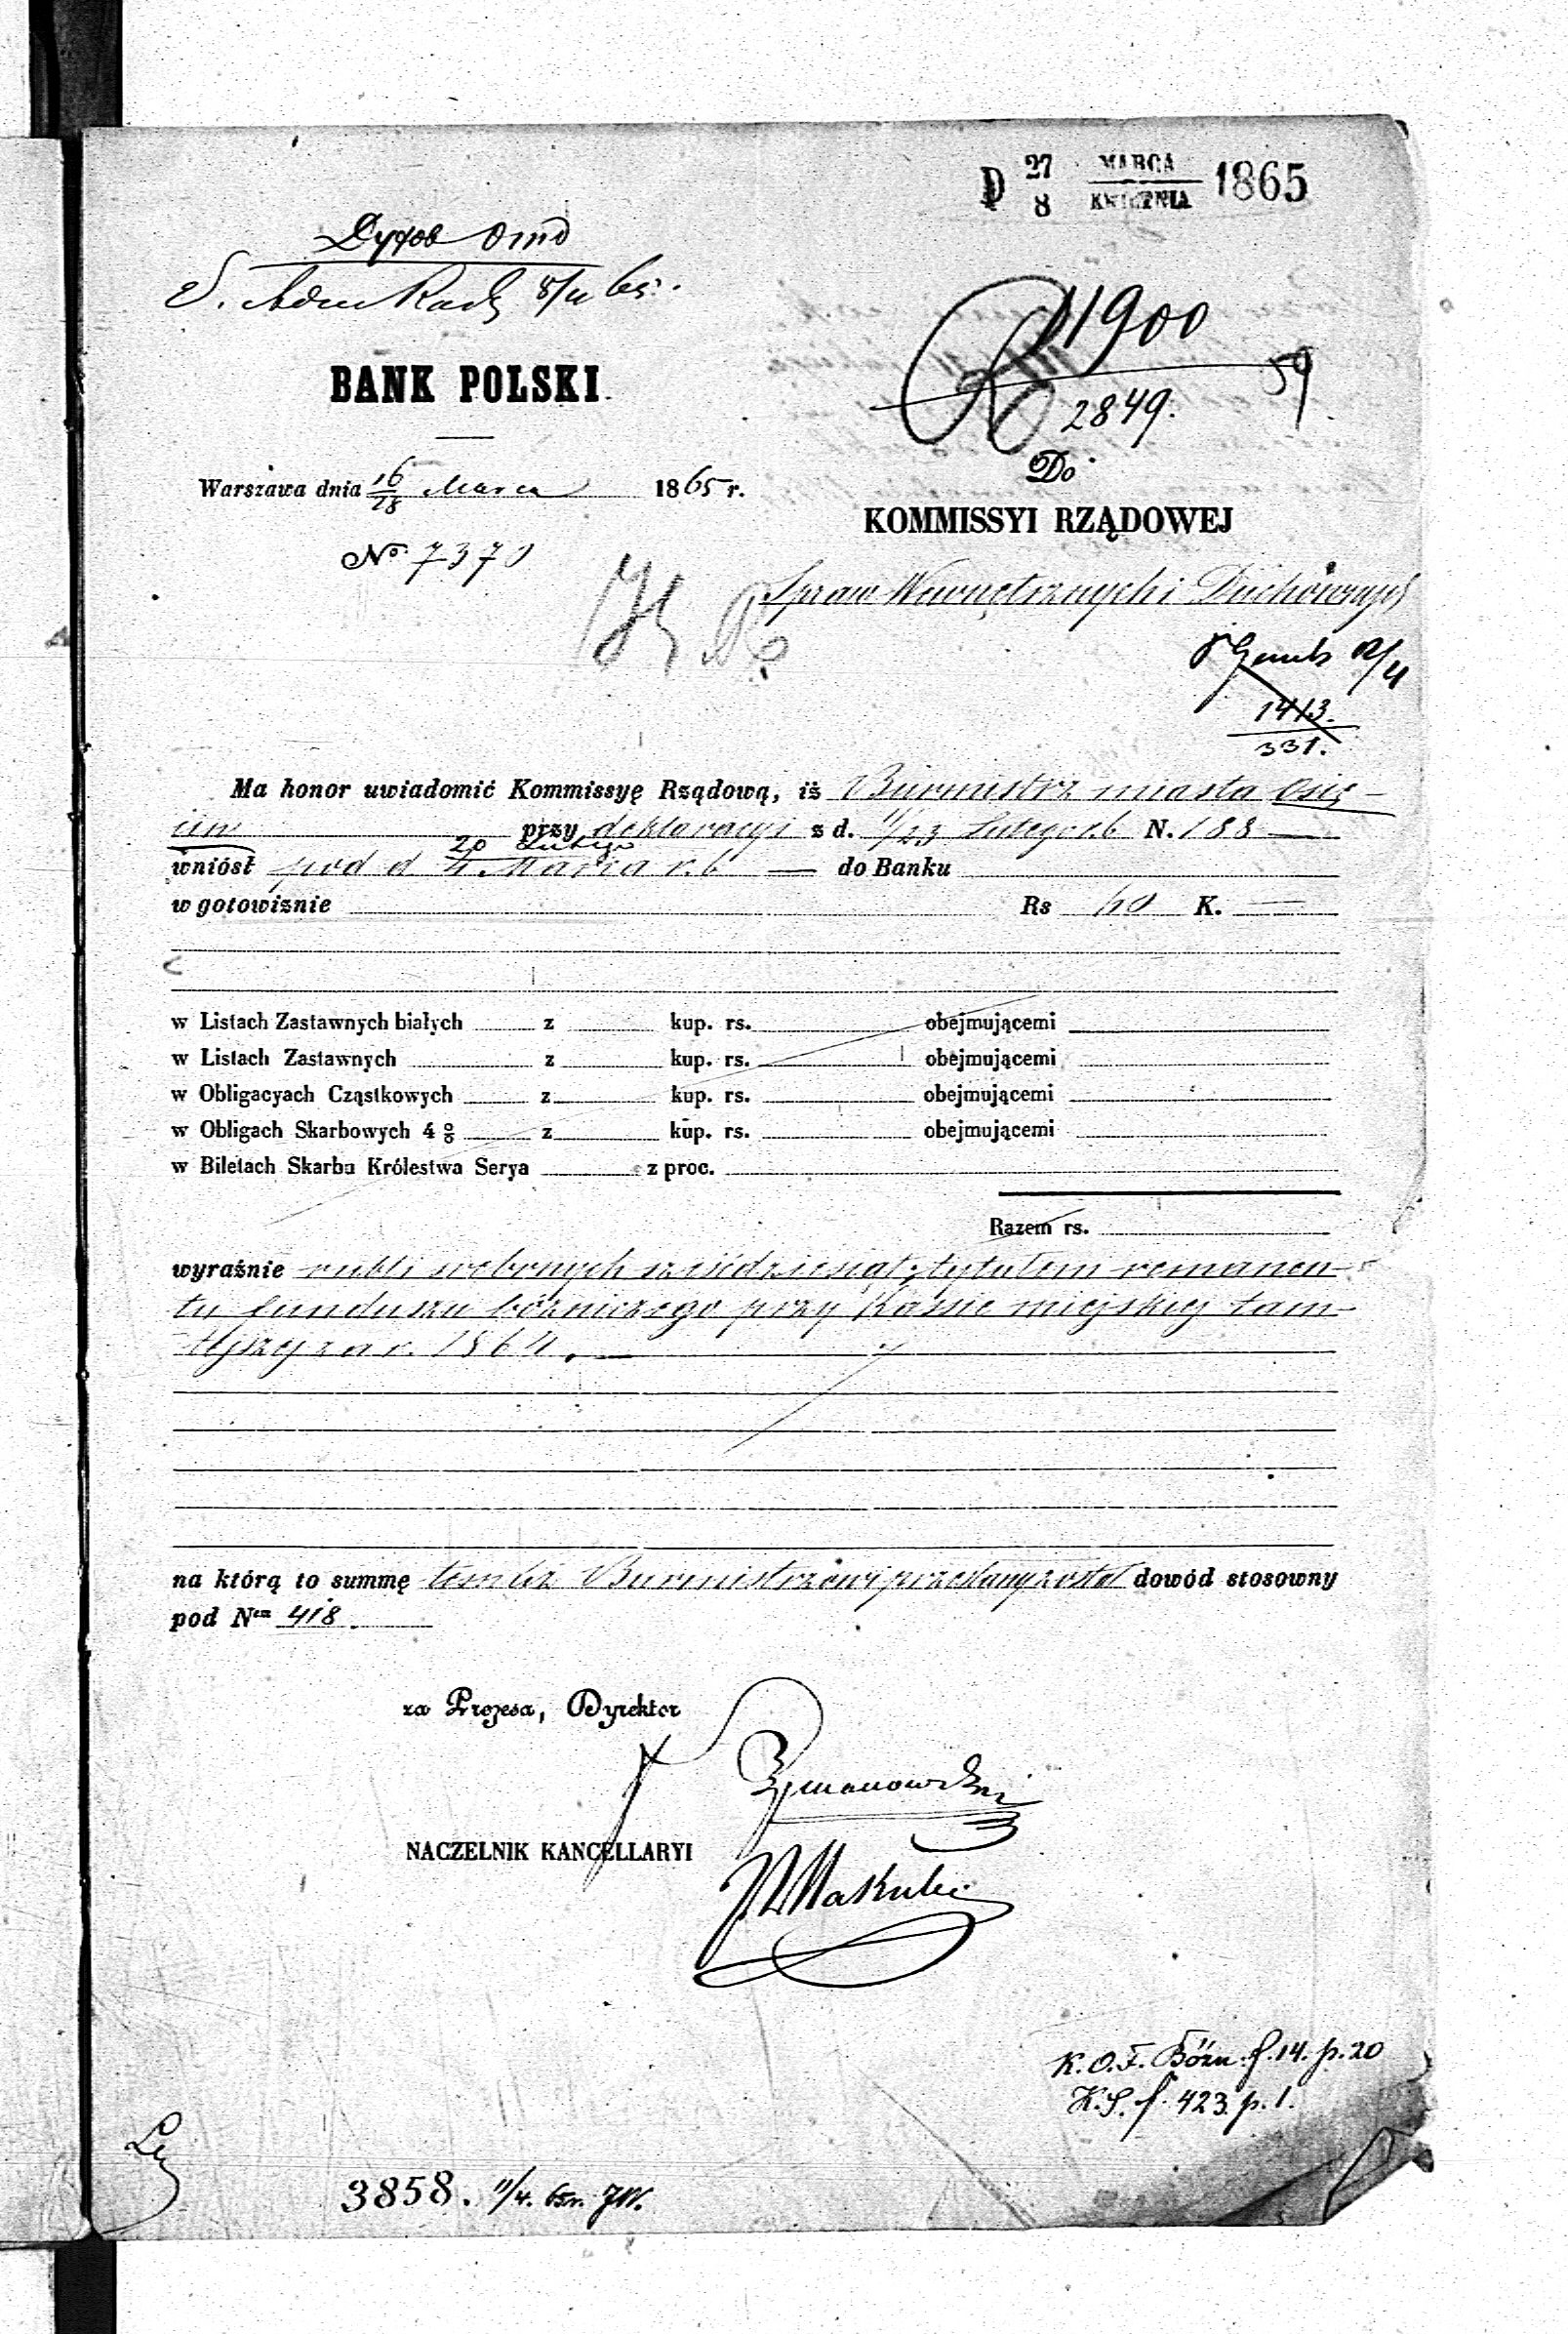 D 27/8 MARCA/KWIETNIA 1865
11900
59
2849.
BANK POLSKI.
Warszawa dnia 16/28 Marca 1865 r.
No. 7370
Do
KOMMISSYI RZĄDOWEJ
Spraw Wewnętrznych i Duchownych
1413.
331.
Ma honor uwiadomić Kommissyę Rządową, iż Burmistrz miasta Osię-
cin przy deklaracyi z d. 11/23 Lutego r. b N. 188 —
wniósł pod d 20 Lutego/4 Marca r. b — do Banku
w gotowiznie Rs 60 K. —
w Listach Zastawnych białych z kup. rs. obejmującemi
w Listach Zastawnych z kup. rs. obejmującemi
w Obligacyach Cząstkowych z kup. rs. obejmującemi
w Obligach Skarbowych 4 % z kup. rs. obejmującemi
w Biletach Skarbu Królestwa Serya z proc.
Razem rs.
wyraźnie rubli srebrnych sześćdziesiąt, tytułem remanen-
tu funduszu bóżniczego przy Kassie miejskiej tam-
tejszej za r. 1864. —
na którą to summę temuż Burmistrzowi przesłany został dowód stosowny
pod Nem 418.
za Prezesa, Dyrektor
Szymanowski
NACZELNIK KANCELLARYI
Makulec
K. O. F. Bóżn. f. 14. p. 20
K. S. f. 423. p. 1.
3858. 11/4. 65r.